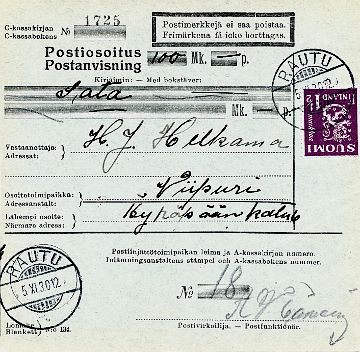 C-kassakirjan
C-kassabokens № 1725
Postimerkkejä ei saa poistaa.
Frimärkena få icke borttagas.
Postiosoitus
Postanvisning 100 Mk. — p.
Kirjaimin: — Med bokstäver:
Sata
Mk. — p.
RAUTU
5.XI.30.12
SUOMI
FINLAND
Vastaanottaja:
Adressat: H. J. Helkama
Osoitetoimipaikka:
Adressanstalt: Viipuri
Lähempi osote:
Närmare adress:
Postiinjättötoimipaikan leima ja A-kassakirjan numero.
Inlämningsanstaltens stämpel och A-kassabokens nummer.
RAUTU
5.XI.30.12
№ 18
Postivirkailija. — Postfunktionär.
Lomake
Blankett № 134.